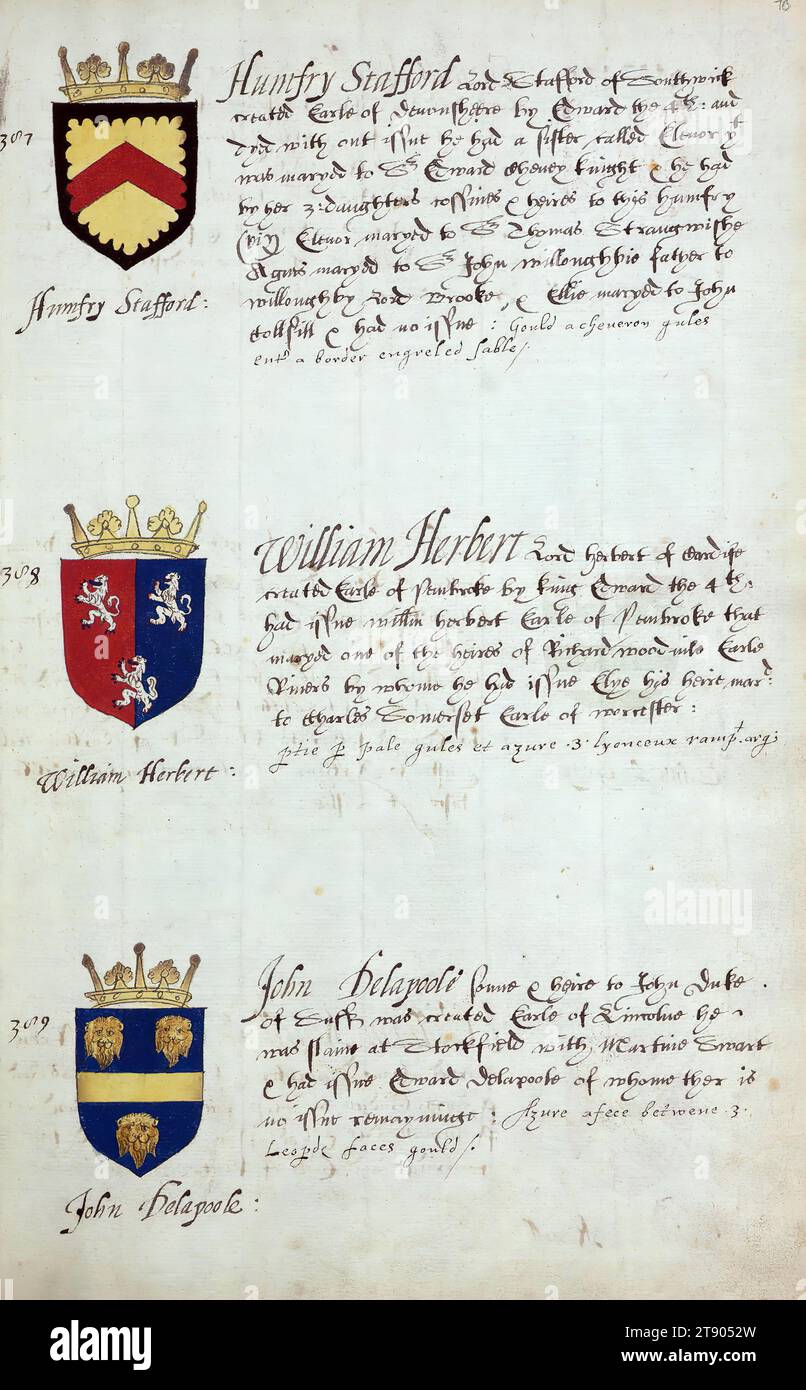 78
387
Humfry Stafford Lord Stafford of Southwick
created Earle of Devonsheere by Edward the 4th: and
dyed with out issue he had a sister called Elenor yt
was maryed to Sr Edward Cheney knight & he had
by her 3: daughters cossines & heires to this Humfry
(viz) Elenor maryed to Sr Thomas Strangwishe
Agnis maryed to Sr John willoughbie father to
willoughby Lord Brooke, & Ellie maryed to John
Collsill & had no issue: Gould a cheveron gules
entr a border engreled sable /.
Humfry Stafford:
388
William Herbert Lord Herbert of Cardife
created Earle of Penbroke by king Edward the 4th:
had issue willm herbert Earle of Penbroke that
maryed one of the heires of Richard woodvile Earle
Rivers by whome he had issue Elyz his heire, mard:
to Charles Somerset Earle of worcester:
ptie p pale gules et azure .3. lyonceux rampt. arg:
William Herbert:
389
John Delapoole sonne & heire to John Duke
of Suff was created Earle of Lincolne he
was slaine at Stockfield with Martine Swart
& had issue Edward Delapoole of whome ther is
no issue remayninge: Azure a fece betwene .3.
Leopde faces gould /.
John Delapoole:
alamy
Image ID: 2T9052W
www.alamy.com